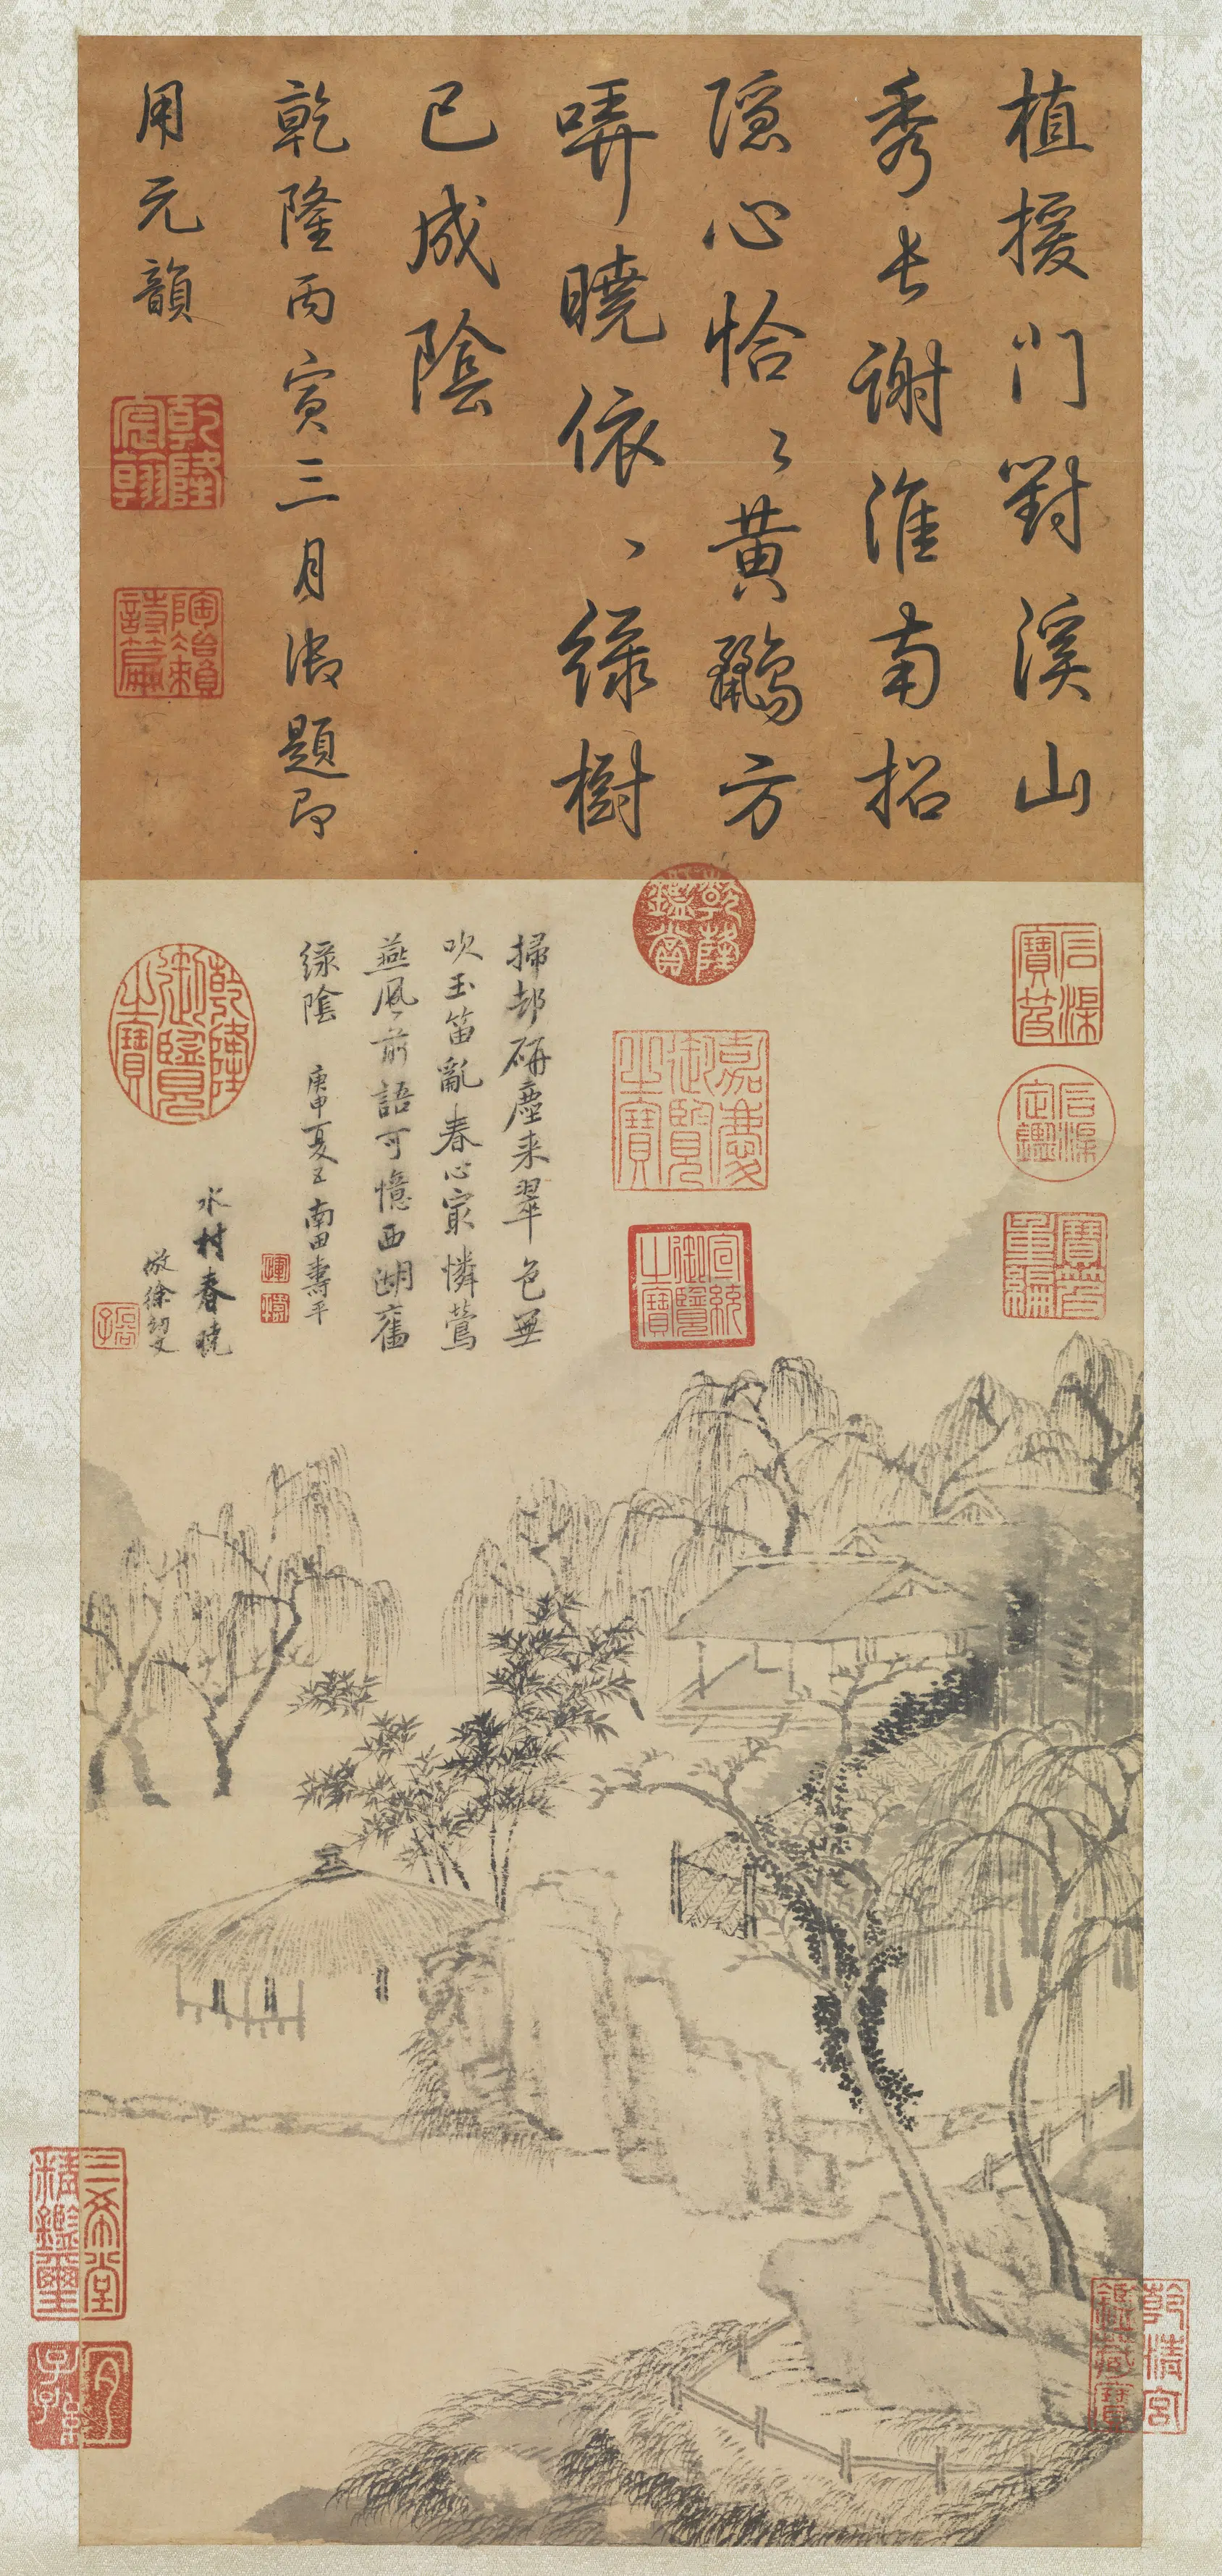 植援門對溪山
秀長謝淮南招
隱心恰〻黃鸝方
哢曉依〻綠樹
已成陰
乾隆丙寅三月御題即
用元韻
乾隆宸翰
陶冶賴詩篇
乾隆鑑賞
嘉慶御覽之寶
宣統御覽之寶
石渠寶笈
石渠定鑑
寶笈重編
掃却研塵来翠色無
吹玉笛亂春心最憐鶯
燕風前語可憶西湖舊
綠陰 庚申夏五南田壽平
水村春曉
倣徐幼文
乾隆御覽之寶
三希堂精鑑璽
宜子孫
乾清宮鑑藏寶